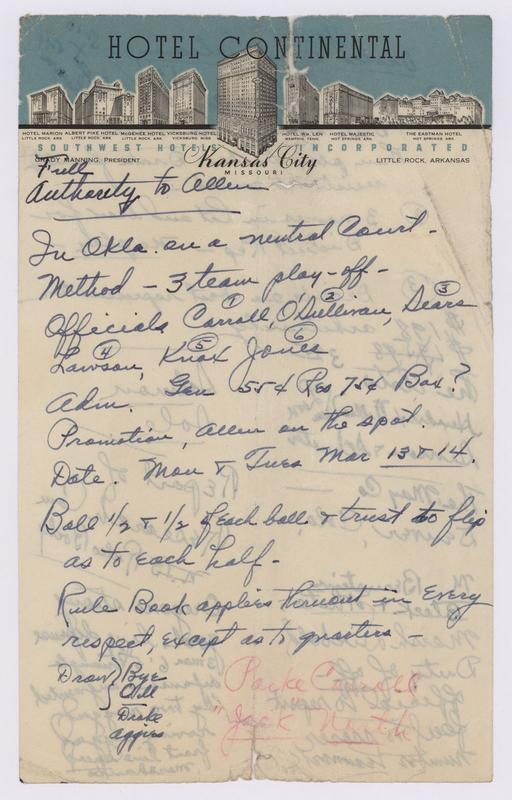 HOTEL CONTINENTAL
HOTEL MARION ALBERT PIKE HOTEL McGEHEE HOTEL VICKSBURG HOTEL HOTEL WM. LEN HOTEL MAJESTIC THE EASTMAN HOTEL
LITTLE ROCK, ARK. LITTLE ROCK, ARK. LITTLE ROCK, ARK. VICKSBURG, MISS. MEMPHIS, TENN. HOT SPRINGS, ARK. HOT SPRINGS, ARK.
SOUTHWEST HOTELS INCORPORATED
GRADY MANNING, PRESIDENT Kansas City LITTLE ROCK, ARKANSAS
MISSOURI
Full
Authority to Allen
In Okla. on a neutral Court -
Method - 3 team play-off -
1 2 3
Officials Carroll, O'Sullivan, Sears
4 5 6
Lawson, Knox Jones
Adm. Gen 55¢ Res 75¢ Box?
Promotion, Allen on the spot.
Date. Mon & Tues Mar 13 & 14.
Ball 1/2 & 1/2 of each ball & trust to flip
as to each half -
Rule Book applies thruout in every
respect, except as to quarters -
Draw } Bye
Drake
aggies
Parke Carroll
"Jack